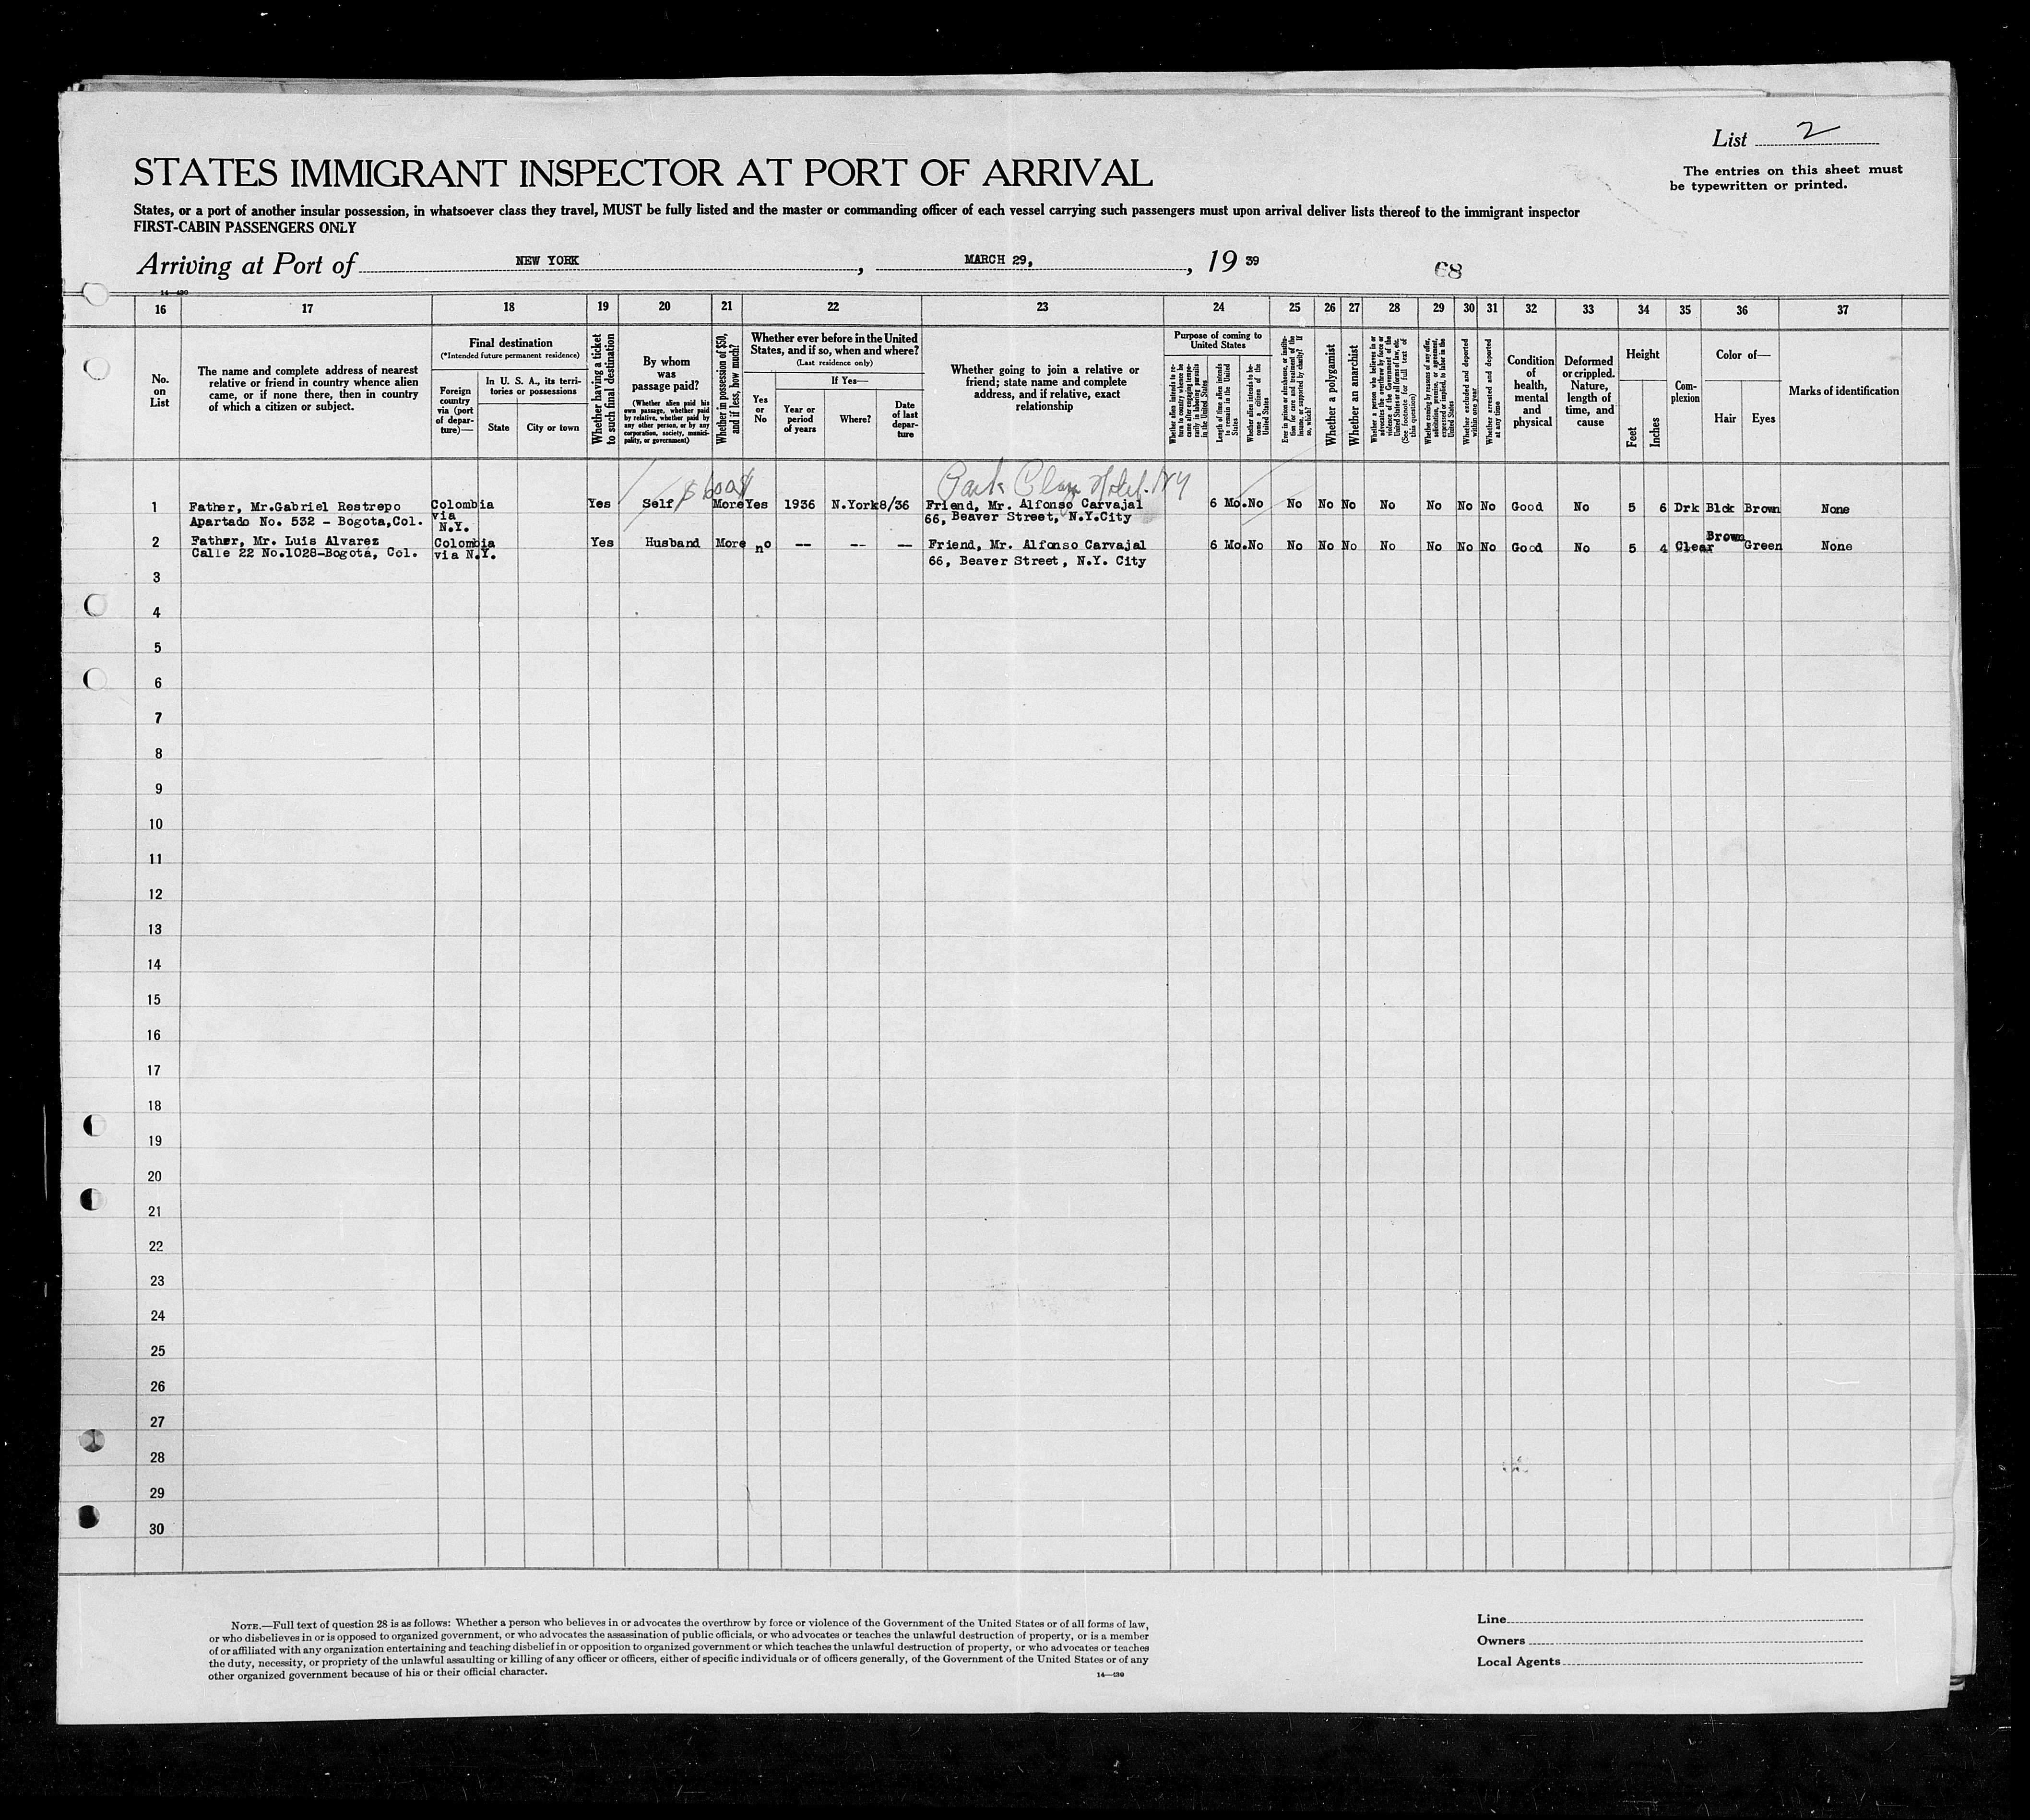 List 2
The entries on this sheet must
be typewritten or printed.
STATES IMMIGRANT INSPECTOR AT PORT OF ARRIVAL
States, or a port of another insular possession, in whatsoever class they travel, MUST be fully listed and the master or commanding officer of each vessel carrying such passengers must upon arrival deliver lists thereof to the immigrant inspector
FIRST-CABIN PASSENGERS ONLY
Arriving at Port of NEW YORK, MARCH 29, 1939
68
14—430
16 17 18 19 20 21 22 23 24 25 26 27 28 29 30 31 32 33 34 35 36 37
No.
on
List
The name and complete address of nearest
relative or friend in country whence alien
came, or if none there, then in country
of which a citizen or subject.
Final destination
(*Intended future permanent residence)
Foreign
country
via (port
of depar-
ture)—
In U. S. A., its terri-
tories or possessions
State
City or town
Whether having a ticket
to such final destination
By whom
was
passage paid?
(Whether alien paid his
own passage, whether paid
by relative, whether paid by
any other person, or by any
corporation, society, munici-
pality, or government)
Whether in possession of $50,
and if less, how much?
Whether ever before in the United
States, and if so, when and where?
(Last residence only)
Yes
or
No
If Yes—
Year or
period
of years
Where?
Date
of last
depar-
ture
Whether going to join a relative or
friend; state name and complete
address, and if relative, exact
relationship
Purpose of coming to
United States
Whether alien intends to re-
turn to country whence he
came after engaging tempo-
rarily in laboring pursuits
in the United States
Length of time alien intends
to remain in the United
States
Whether alien intends to be-
come a citizen of the
United States
Ever in prison or almshouse, or institu-
tion for care and treatment of the
insane, or supported by charity? If
so, which?
Whether a polygamist
Whether an anarchist
Whether a person who believes in or
advocates the overthrow by force or
violence of the Government of the
United States or all forms of law, etc.
(See footnote for full text of
this question)
Whether coming by reasons of any offer,
solicitation, promise, or agreement,
expressed or implied, to labor in the
United States
Whether excluded and deported
within one year
Whether arrested and deported
at any time
Condition
of
health,
mental
and
physical
Deformed
or crippled.
Nature,
length of
time, and
cause
Height
Feet
Inches
Com-
plexion
Color of—
Hair
Eyes
Marks of identification
Park Hotel. NY
1 Father, Mr.Gabriel Restrepo Colombia Yes Self More Yes 1936 N.York 8/36 Friend, Mr. Alfonso Carvajal 6 Mo. No No No No No No No No Good No 5 6 Drk Blck Brown None
Apartado No. 532 - Bogota,Col. via 66, Beaver Street, N.Y.City
N.Y.
2 Father, Mr. Luis Alvarez Colombia Yes Husband More no -- -- -- Friend, Mr. Alfonso Carvajal 6 Mo. No No No No No No No No Good No 5 4 Clear Brown Green None
Calle 22 No.1028-Bogotá, Col. via N.Y. 66, Beaver Street, N.Y. City
3
4
5
6
7
8
9
10
11
12
13
14
15
16
17
18
19
20
21
22
23
24
25
26
27
28
29
30
NOTE.—Full text of question 28 is as follows: Whether a person who believes in or advocates the overthrow by force or violence of the Government of the United States or of all forms of law,
or who disbelieves in or is opposed to organized government, or who advocates the assassination of public officials, or who advocates or teaches the unlawful destruction of property, or is a member
of or affiliated with any organization entertaining and teaching disbelief in or opposition to organized government or which teaches the unlawful destruction of property, or who advocates or teaches
the duty, necessity, or propriety of the unlawful assaulting or killing of any officer or officers, either of specific individuals or of officers generally, of the Government of the United States or of any
other organized government because of his or their official character.
14—430
Line
Owners
Local Agents